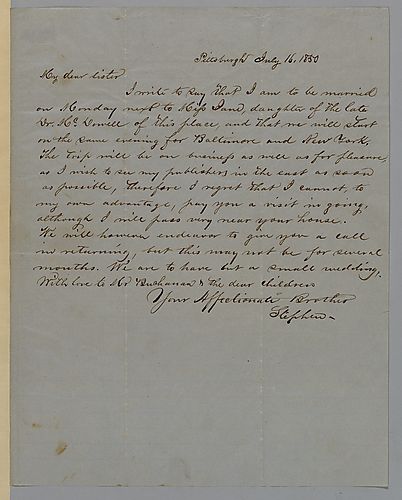 Pittsburgh July 16, 1850
My dear sister
I write to say that I am to be married
on Monday next to Miss Jane, daughter of the late
Dr. Mc. Dowell of this place, and that we will start
on the same evening for Baltimore and New York.
The trip will be on business as well as for pleasure,
as I wish to see my publishers in the east as soon
as possible, therefore I regret that I cannot, to
my own advantage, pay you a visit in going,
although I will pass very near your house.
We will however endeavor to give you a call
in returning, but this may not be for several
months. We are to have but a small wedding.
With love to Mr Buchanan & the dear children
Your Affectionate Brother
Stephen